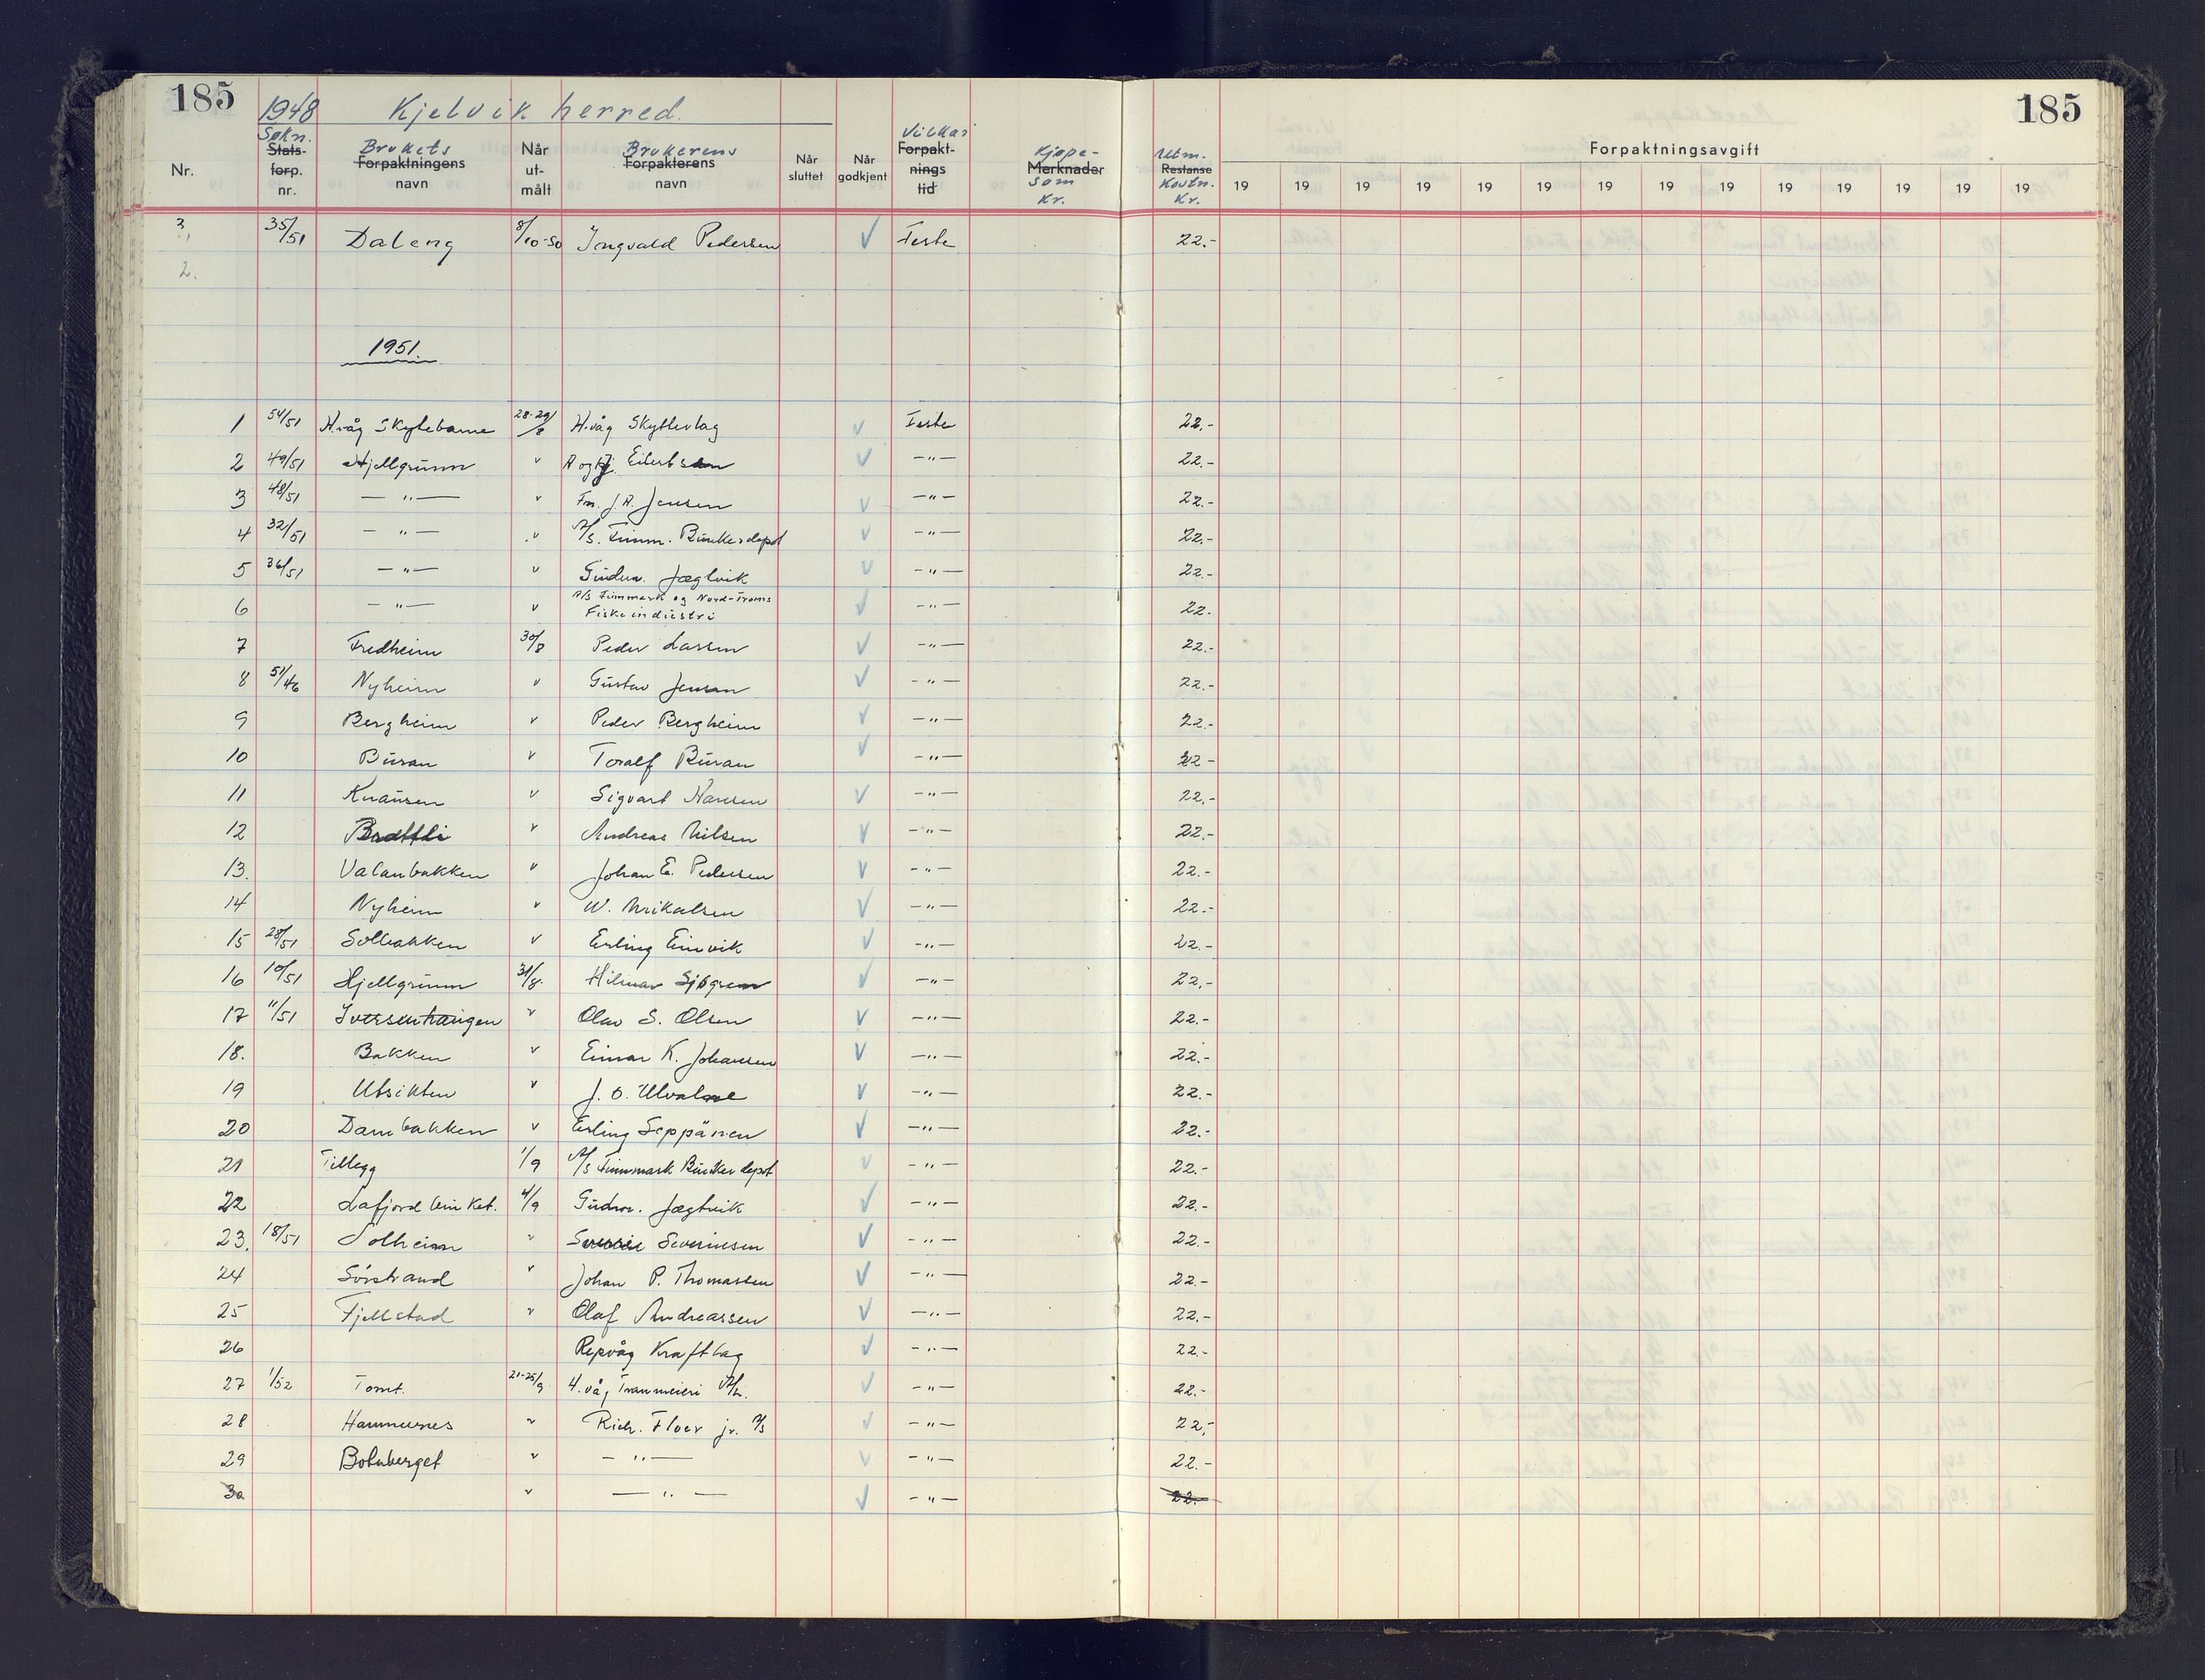 185 1948 Kjelvik herred. 185
Nr. Søkn. Stats-forp. nr. Brukets Forpaktningens navn Når ut-målt Brukerens Forpakterens navn Når sluttet Når godkjent Vilkår Forpakt-nings tid Kjøpe- Merknader som Kr. Utm. Restanse Kostn. Kr. Forpaktningsavgift
19 19 19 19 19 19 19 19 19 19 19 19 19 19
3, 35/51 Daleng 8/10-50 Ingvald Pedersen √ Feste 22.-
2.
1951.
1 54/51 H.våg Skytebane 28-29/8 H.våg Skytterlag √ Feste 22.-
2 49/51 Hjellgrunn " A og Eilertsen √ -"- 22.-
3 48/51 -"- " Fm. J.A. Jensen √ -"- 22.-
4 32/51 -"- " A/S. Finnm. Bunkersdepot √ -"- 22.-
5 36/51 -"- " Gudm. Jægtvik √ -"- 22.-
6 -"- " A/S Finnmark og Nord-Troms Fiskeindustri √ -"- 22.
7 Fredheim 30/8 Peder Larsen √ -"- 22.-
8 51/46 Nyheim " Gustav Jensen √ -"- 22.-
9 Bergheim " Peder Bergheim √ -"- 22.-
10 Buran " Toralf Buran √ -"- 22-
11 Knausen " Sigvart Hansen √ -"- 22.-
12 Brattli " Andreas Nilsen √ -"- 22.-
13. Valanbakken " Johan E. Pedersen √ -"- 22.-
14 Nyheim " W. Mikalsen √ -"- 22.-
15 28/51 Solbakken " Erling Einvik √ -"- 22.-
16 10/51 Hjellgrunn 31/8. Hilmar Sjøgren √ -"- 22.-
17 11/51 Iversenhaugen " Olav S. Olsen √ -"- 22.-
18. Bakken " Einar K. Johansen √ -"- 22.-
19 Utsikten " J. O. Ulvatne √ -"- 22.-
20 Dambakken " Erling Seppänen √ -"- 22.-
21 Tillegg 1/9 A/S Finnmark Bunkerdepot √ -"- 22.-
22 Lafjord 4/9 Gudm. Jægtvik √ -"- 22.-
23. 18/51 Solheim " Severinsen √ -"- 22.-
24 Sørstrand " Johan P. Thomassen √ -"- 22.-
25 Fjellstad " Olaf Andreassen √ -"- 22.-
26 Repvåg Kraftlag √ -"- 22.-
27 1/52 Tomt. 21-25/9 H.våg Tranmeieri A/L. √ -"- 22.-
28 Hamnernes " Rich. Floer jr. A/S √ -"- 22,-
29 Botnberget " -"- √ -"- 22.-
30 " -"- √ -"- 22.-